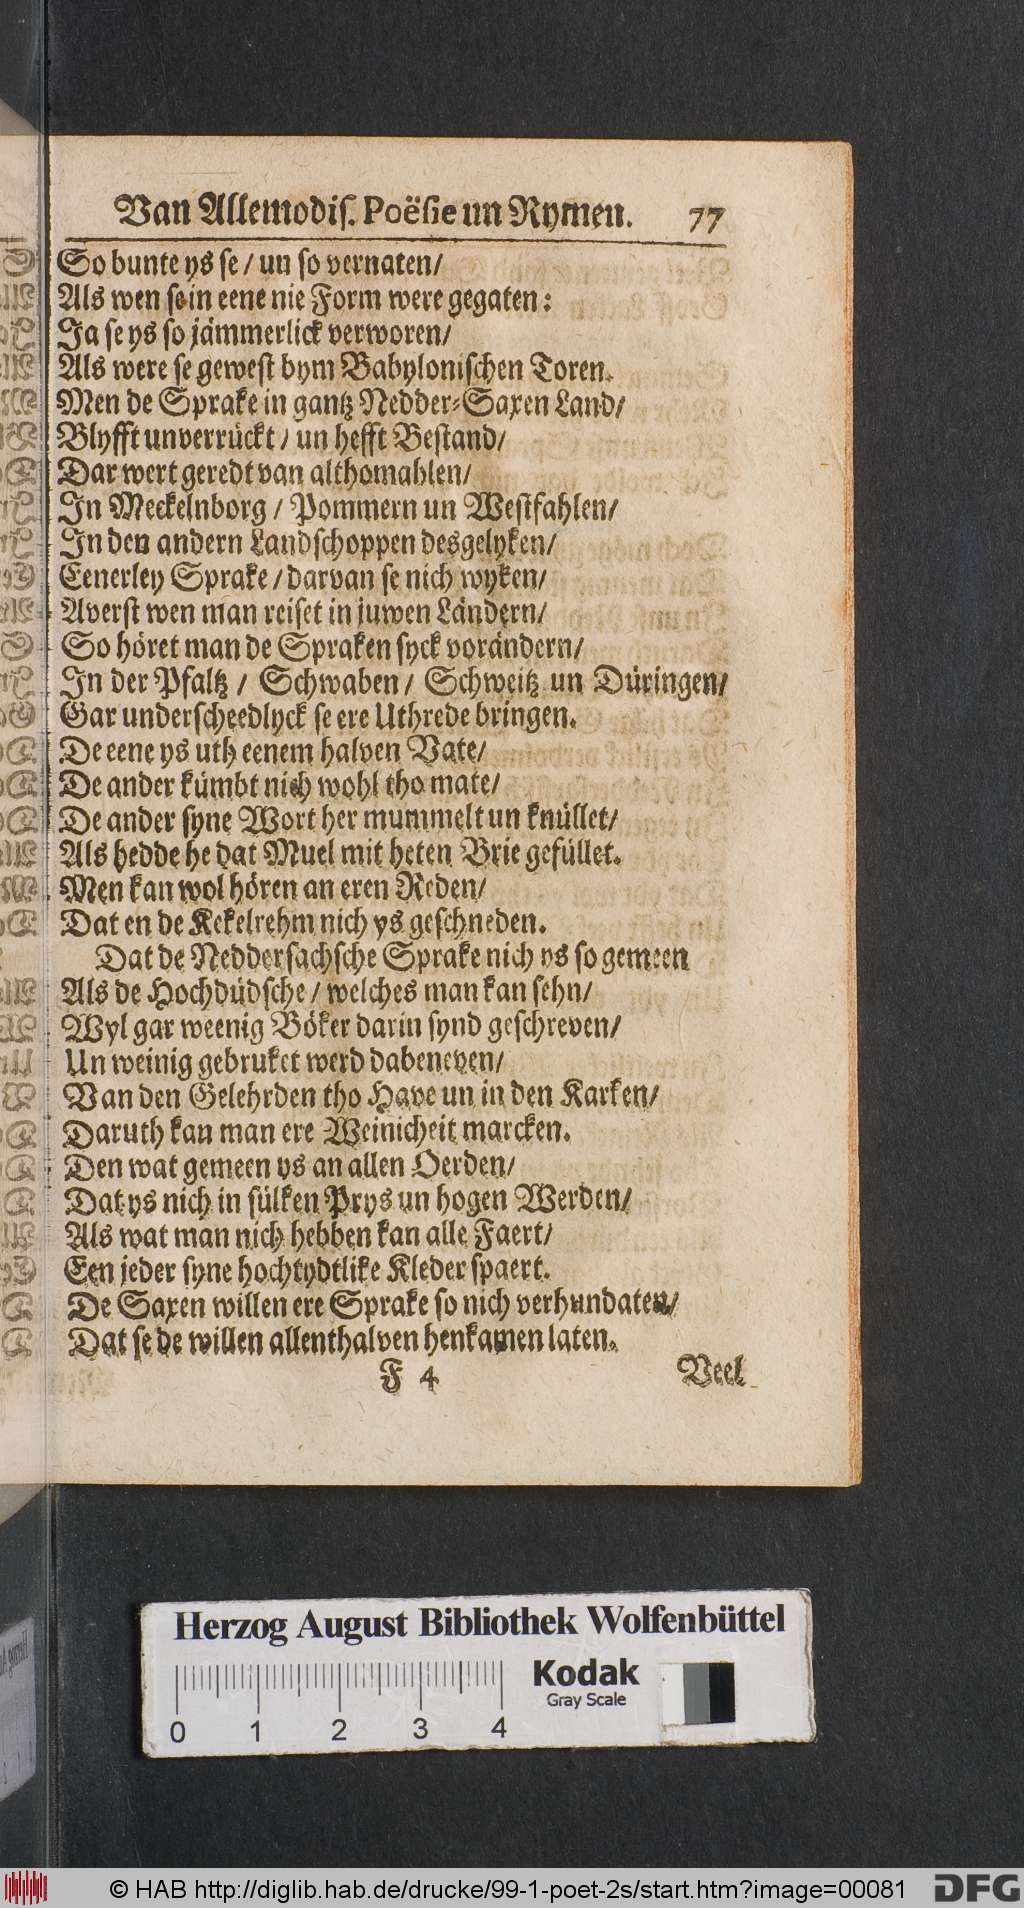 Van Allemodis. Poësie un Rymen. 77
So bunte ys se / un so vernaten/
Als wen se in eene nie Form were gegaten:
Ja se ys so jämmerlick verworen/
Als were se gewest bym Babylonischen Toren.
Men de Sprake in gantz Nedder-Saxen Land/
Blyfft unverrückt / un hefft Bestand/
Dar wert geredt van althomahlen/
In Meckelnborg / Pommern un Westfahlen/
In den andern Landschoppen desgelyken/
Eenerley Sprake / darvan se nich wyken/
Averst wen man reiset in juwen Ländern/
So höret man de Spraken syck vorändern/
In der Pfaltz / Schwaben / Schweitz un Düringen/
Gar underscheedlyck se ere Uthrede bringen.
De eene ys uth eenem halven Vate/
De ander kümbt nich wohl tho mate/
De ander syne Wort her mummelt un knüllet/
Als hedde he dat Muel mit heten Brie gefüllet.
Men kan wol hören an eren Reden/
Dat en de Kekelrehm nich ys geschneden.
Dat de Neddersachsche Sprake nich ys so gemeen
Als de Hochdüdsche / welches man kan sehn/
Wyl gar weenig Böker darin synd geschreven/
Un weinig gebruket werd dabeneven/
Van den Gelehrden tho Have un in den Karken/
Daruth kan man ere Weinicheit marcken.
Den wat gemeen ys an allen Oerden/
Dat ys nich in sülken Prys un hogen Werden/
Als wat man nich hebben kan alle Faert/
Een jeder syne hochtydtlike Kleder spaert.
De Saxen willen ere Sprake so nich verhundaten/
Dat se de willen allenthalven henkamen laten.
F 4 Veel
Herzog August Bibliothek Wolfenbüttel
Kodak
Gray Scale
0 1 2 3 4
© HAB http://diglib.hab.de/drucke/99-1-poet-2s/start.htm?image=00081 DFG